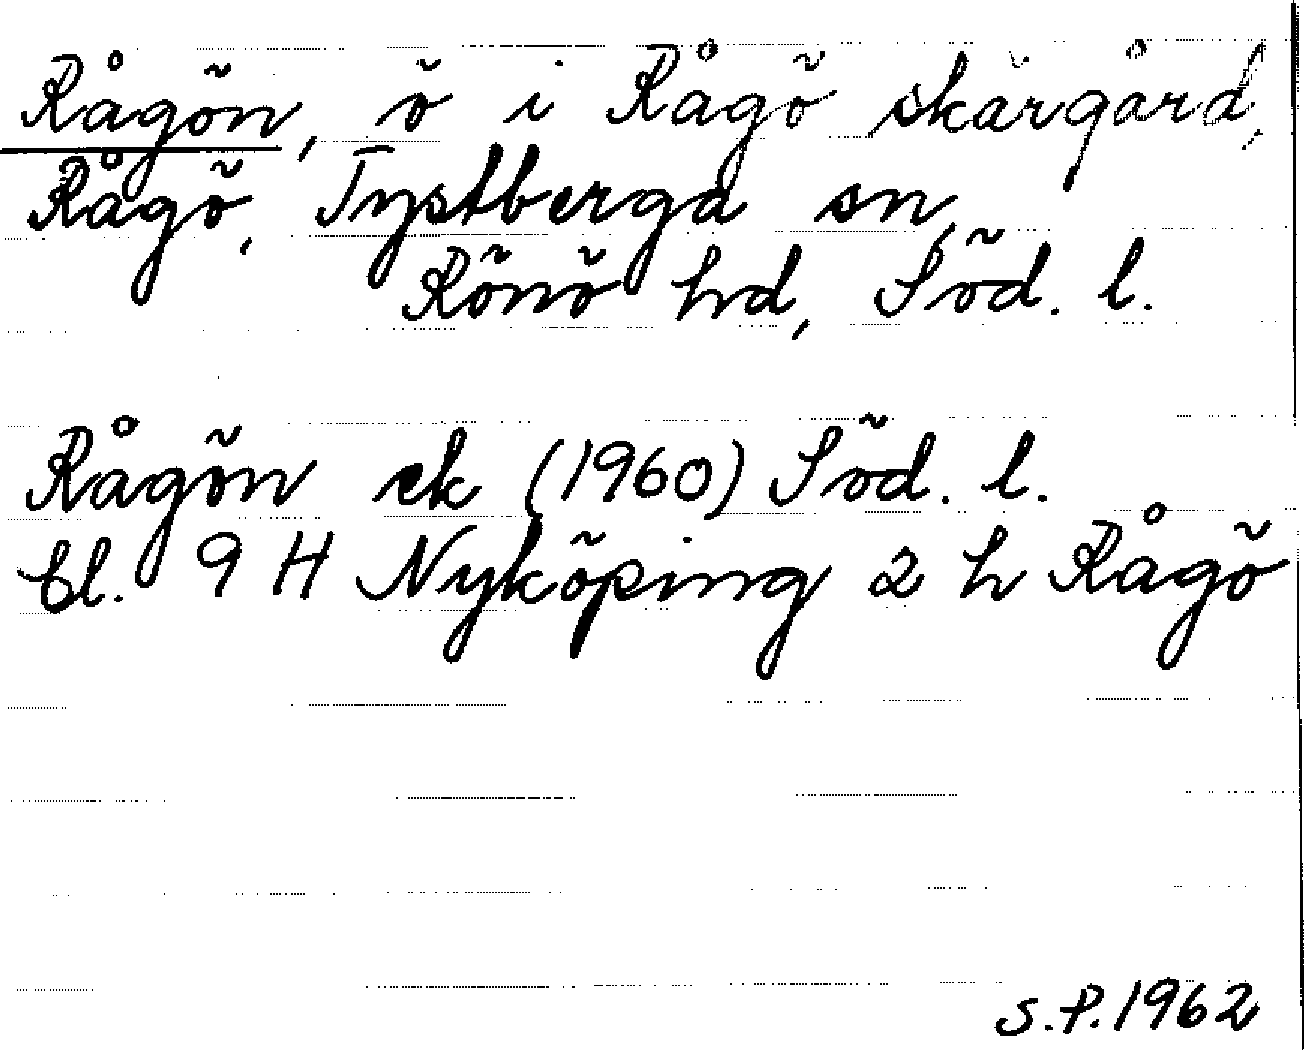 Rågön, ö i Rågö skärgård,
Rågö, Tystberga sn,
Rönö hd, Söd. l.
Rågön ek (1960) Söd. l.
bl. 9 H Nyköping 2 h Rågö
S.P. 1962